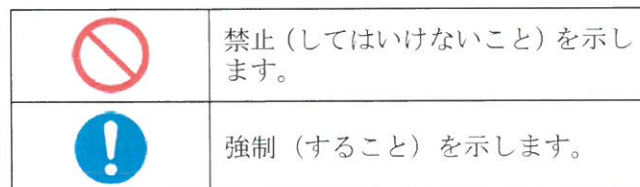 禁止(してはいけないこと)を示し
ます。
強制(すること)を示します。